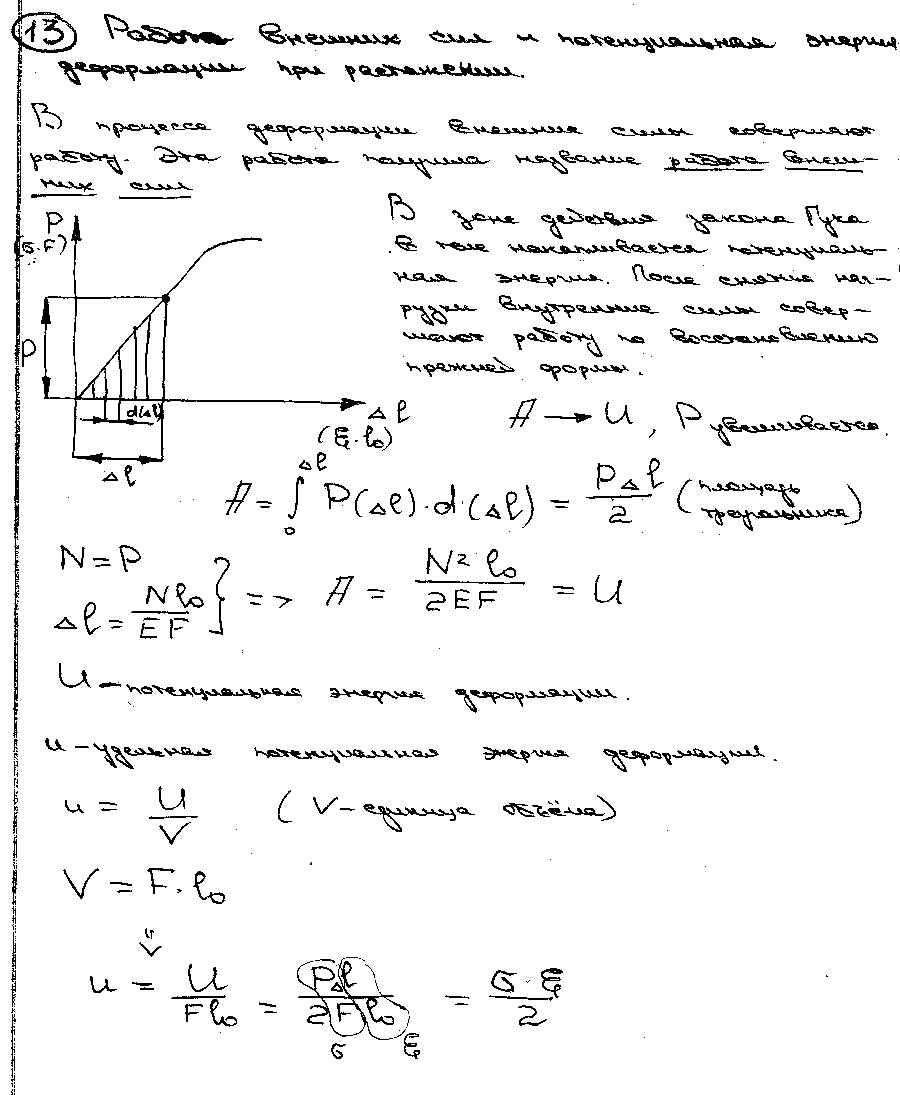 13 Работа внешних сил и потенциальная энергия
деформации при растяжении.
В процессе деформации внешние силы совершают
работу. Эта работа получила название работа внеш-
них сил
P
(σ·F)
P
d(Δl)
Δl
(ξ·l₀)
Δl
В зоне действия закона Гука
в теле накапливается потенциаль-
ная энергия. После снятия наг-
рузки внутренние силы совер-
шают работу по восстановлению
прежней формы.
A → U, P увеличивается.
A = ∫₀^Δl P(Δl)·d·(Δl) = PΔl/2 (площадь треугольника)
N = P
Δl = Nl₀/EF } => A = N²l₀/2EF = U
U – потенциальная энергия деформации.
u – удельная потенциальная энергия деформации.
u = U/V (V – единица объёма)
V = F·l₀
u = U/Fl₀ = PΔl/2Fl₀ = σ·ξ/2
σ ξ